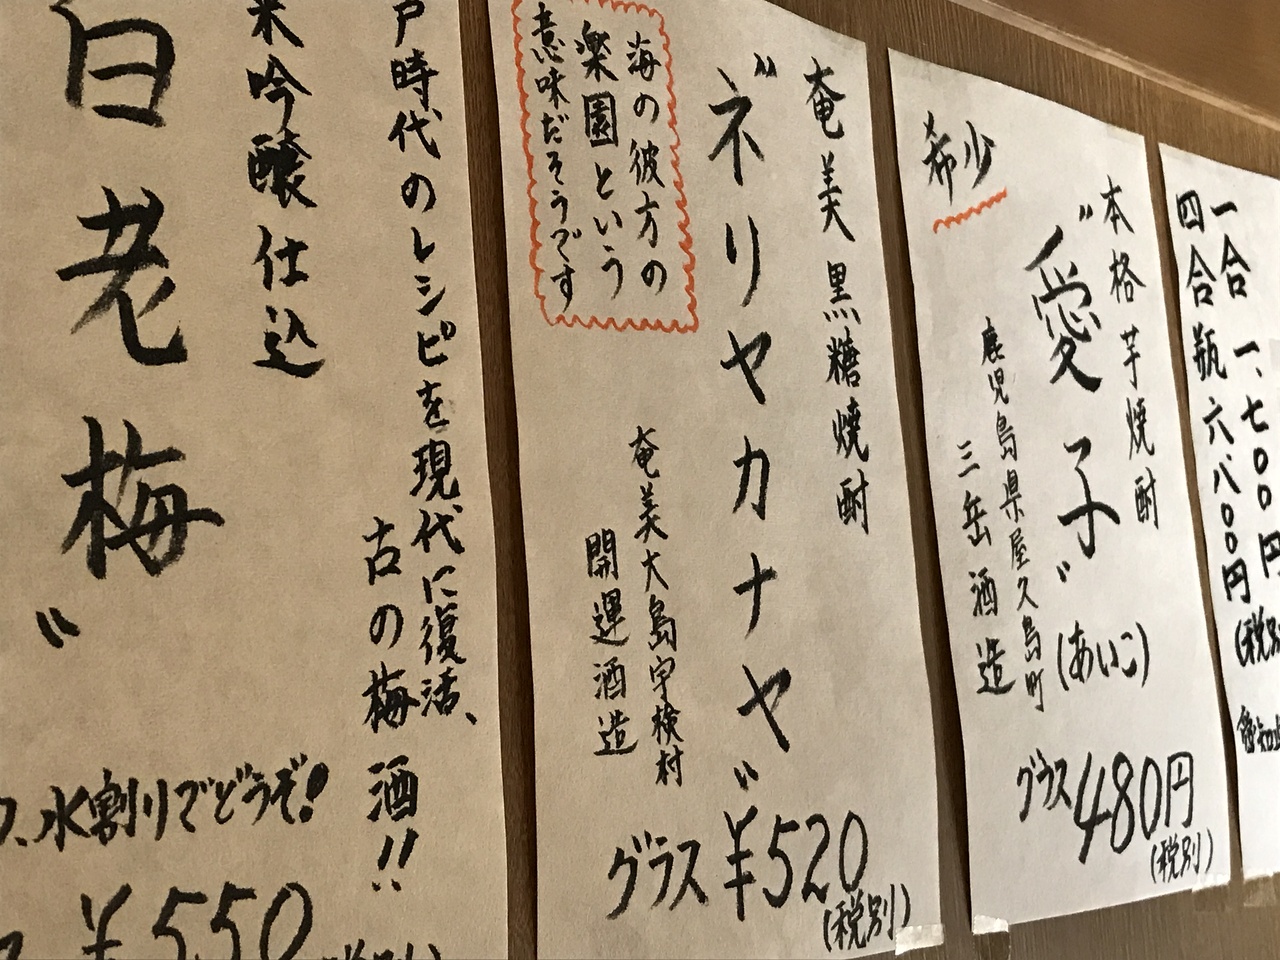 一合 一、七〇〇円
四合瓶 六、八〇〇円
(税別
希少
本格芋焼酎
"愛子"
(あいこ)
鹿児島県屋久島町
三岳酒造
グラス480円
(税別)
奄美黒糖焼酎
"ネリヤカナヤ"
海の彼方の
楽園という
意味だそうです
奄美大島宇検村
開運酒造
グラス ¥520
(税別)
戸時代のレシピを現代に復活、
古の梅酒!!
米吟醸仕込
白老梅"
水割りでどうぞ!
¥550